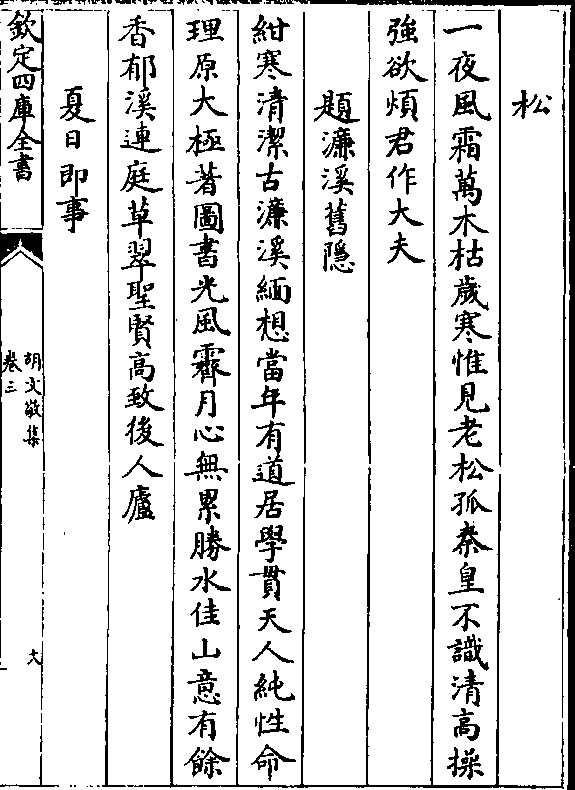 松
一夜風霜萬木枯歲寒惟見老松孤秦皇不識清高操
強欲煩君作大夫
題濂溪舊隱
紺寒清潔古濂溪緬想當年有道居學貫天人純性命
理原大極著圖書光風霽月心無累勝水佳山意有餘
香郁溪連庭草翠聖賢高致後人廬
夏日即事
欽定四庫全書
胡文敬集
卷三